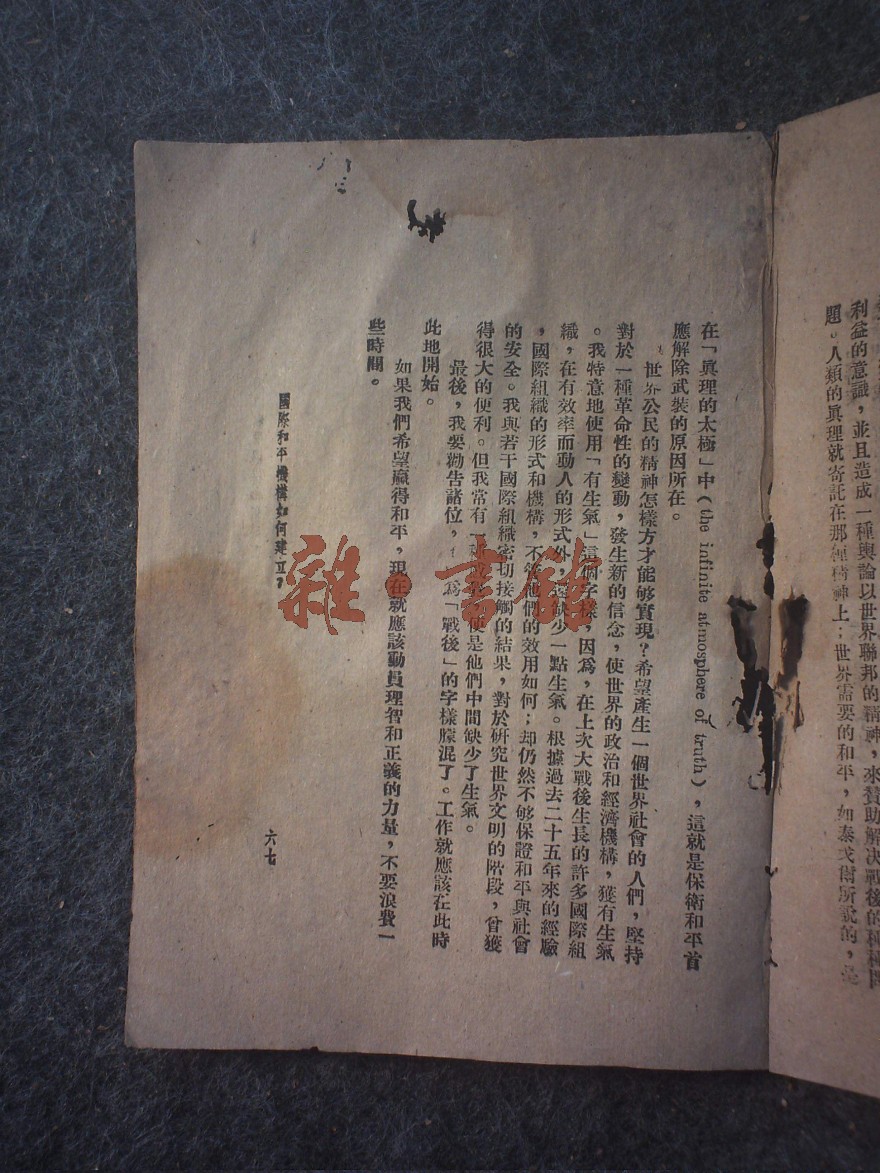 利益的意識，並且造成一種輿論以世界聯邦的精神，來贊助解決戰後的種種問
題。人類的眞理就寄託在那種精神上；世界需要的和平，如泰戈爾所說的，是
在「眞理的太極」中（the infinite atmosphere of truth），這就是保衛和平首
應解除武裝的原因所在。
世界公民的精神怎樣方才能够實現？希望產生一個世界社會的人們，堅持
對於一種革命性的變動，發生新的信念，使世界的政治和經濟機構，獲有生氣
。我特意地使用「有生氣」這個字樣，因爲，在上次大戰後生長的許多國際組
織，在有效率而動人的形式外，還缺少一點生氣。根據過去二十五年來的經驗
，國際組織的形式和機構，不管他們的效用如何；却仍然不够保證和平與社會
的安全。我與若干國際組織密切接觸的結果，對於研究世界文明的階段，曾獲
得很大的便利。但我常有一種感便是他們中間缺少了生氣。
最後，我要勸告諸位，爲「戰後」的字樣朦混了。工作就應該在此時
此地開始。
如果我們希望贏得和平，現在就應該動員理智和正義的力量，不要浪費一
些時間。
國際和平機構如何建立？
六七
雜·書館